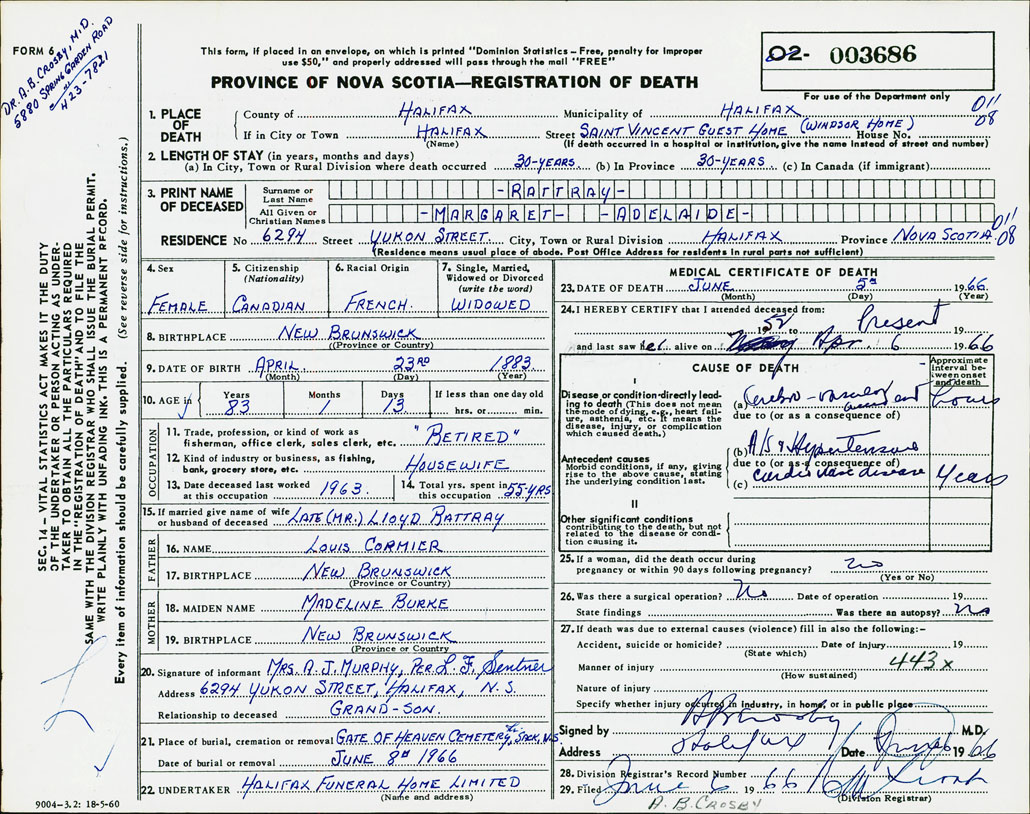 FORM 6
DR. A.B. CROSBY, M.D.
5880 SPRING GARDEN ROAD
423-7821
This form, if placed in an envelope, on which is printed "Dominion Statistics – Free, penalty for improper
use $50," and properly addressed will pass through the mail "FREE"
PROVINCE OF NOVA SCOTIA—REGISTRATION OF DEATH
02- 003686
For use of the Department only
SEC. 14 – VITAL STATISTICS ACT MAKES IT THE DUTY
OF THE UNDERTAKER OR PERSON ACTING AS UNDER-
TAKER TO OBTAIN ALL THE PARTICULARS REQUIRED
IN THE "REGISTRATION OF DEATH" AND TO FILE THE
SAME WITH THE DIVISION REGISTRAR WHO SHALL ISSUE THE BURIAL PERMIT.
WRITE PLAINLY WITH UNFADING INK. THIS IS A PERMANENT RECORD.
Every item of information should be carefully supplied. (See reverse side for instructions.)
1. PLACE OF DEATH
County of HALIFAX Municipality of HALIFAX 011 08
If in City or Town HALIFAX Street SAINT VINCENT GUEST HOME (WINDSOR HOME) House No.
(Name) (If death occurred in a hospital or institution, give the name instead of street and number)
2. LENGTH OF STAY (in years, months and days)
(a) In City, Town or Rural Division where death occurred 30-YEARS (b) In Province 30-YEARS (c) In Canada (if immigrant)
3. PRINT NAME OF DECEASED
Surname or Last Name -RATTRAY-
All Given or Christian Names -MARGARET- -ADELAIDE-
RESIDENCE No 6294 Street YUKON STREET City, Town or Rural Division HALIFAX Province NOVA SCOTIA 011 08
(Residence means usual place of abode. Post Office Address for residents in rural parts not sufficient)
4. Sex FEMALE
5. Citizenship (Nationality) CANADIAN
6. Racial Origin FRENCH
7. Single, Married, Widowed or Divorced (write the word) WIDOWED
8. BIRTHPLACE NEW BRUNSWICK
(Province or Country)
9. DATE OF BIRTH APRIL 23RD 1883
(Month) (Day) (Year)
10. AGE in Years 83 Months 1 Days 13 If less than one day old hrs. or min.
OCCUPATION
11. Trade, profession, or kind of work as
fisherman, office clerk, sales clerk, etc. "RETIRED"
12. Kind of industry or business, as fishing,
bank, grocery store, etc. HOUSEWIFE
13. Date deceased last worked
at this occupation 1963.
14. Total yrs. spent in
this occupation 55-YRS.
15. If married give name of wife
or husband of deceased LATE (MR.) LLOYD RATTRAY
FATHER
16. NAME LOUIS CORMIER
17. BIRTHPLACE NEW BRUNSWICK
(Province or Country)
MOTHER
18. MAIDEN NAME MADELINE BURKE
19. BIRTHPLACE NEW BRUNSWICK
(Province or Country)
20. Signature of informant MRS. A.J. MURPHY, PER L. F. Sentner
Address 6294 YUKON STREET, HALIFAX, N.S.
Relationship to deceased GRAND-SON.
21. Place of burial, cremation or removal GATE OF HEAVEN CEMETERY, SACK, N.S
Date of burial or removal JUNE 8th 1966
22. UNDERTAKER HALIFAX FUNERAL HOME LIMITED
(Name and address)
9004-3.2: 18-5-60
MEDICAL CERTIFICATE OF DEATH
23. DATE OF DEATH JUNE 5th 1966
(Month) (Day) (Year)
24. I HEREBY CERTIFY that I attended deceased from:
1952 to Present 19
and last saw her alive on Apr. 6 1966
CAUSE OF DEATH
Approximate interval between onset and death
I
Disease or condition directly leading to death (This does not mean the mode of dying, e.g., heart failure, asthenia, etc. It means the disease, injury, or complication which caused death.)
(a) Cerebro-vascular accident hours
due to (or as a consequence of)
Antecedent causes
Morbid conditions, if any, giving rise to the above cause, stating the underlying condition last.
(b) A/S & Hypertensive
due to (or as a consequence of)
(c) cardiovasc disease Years
II
Other significant conditions
contributing to the death, but not related to the disease or condition causing it.
25. If a woman, did the death occur during
pregnancy or within 90 days following pregnancy? no
(Yes or No)
26. Was there a surgical operation? No Date of operation 19
State findings Was there an autopsy? No
27. If death was due to external causes (violence) fill in also the following:-
Accident, suicide or homicide? Date of injury 19
(State which)
Manner of injury 443x
(How sustained)
Nature of injury
Specify whether injury occurred in industry, in home, or in public place
Signed by A B Crosby M.D.
Address Halifax Date 1966
28. Division Registrar's Record Number
29. Filed June 6 1966
(Division Registrar)
A. B. CROSBY